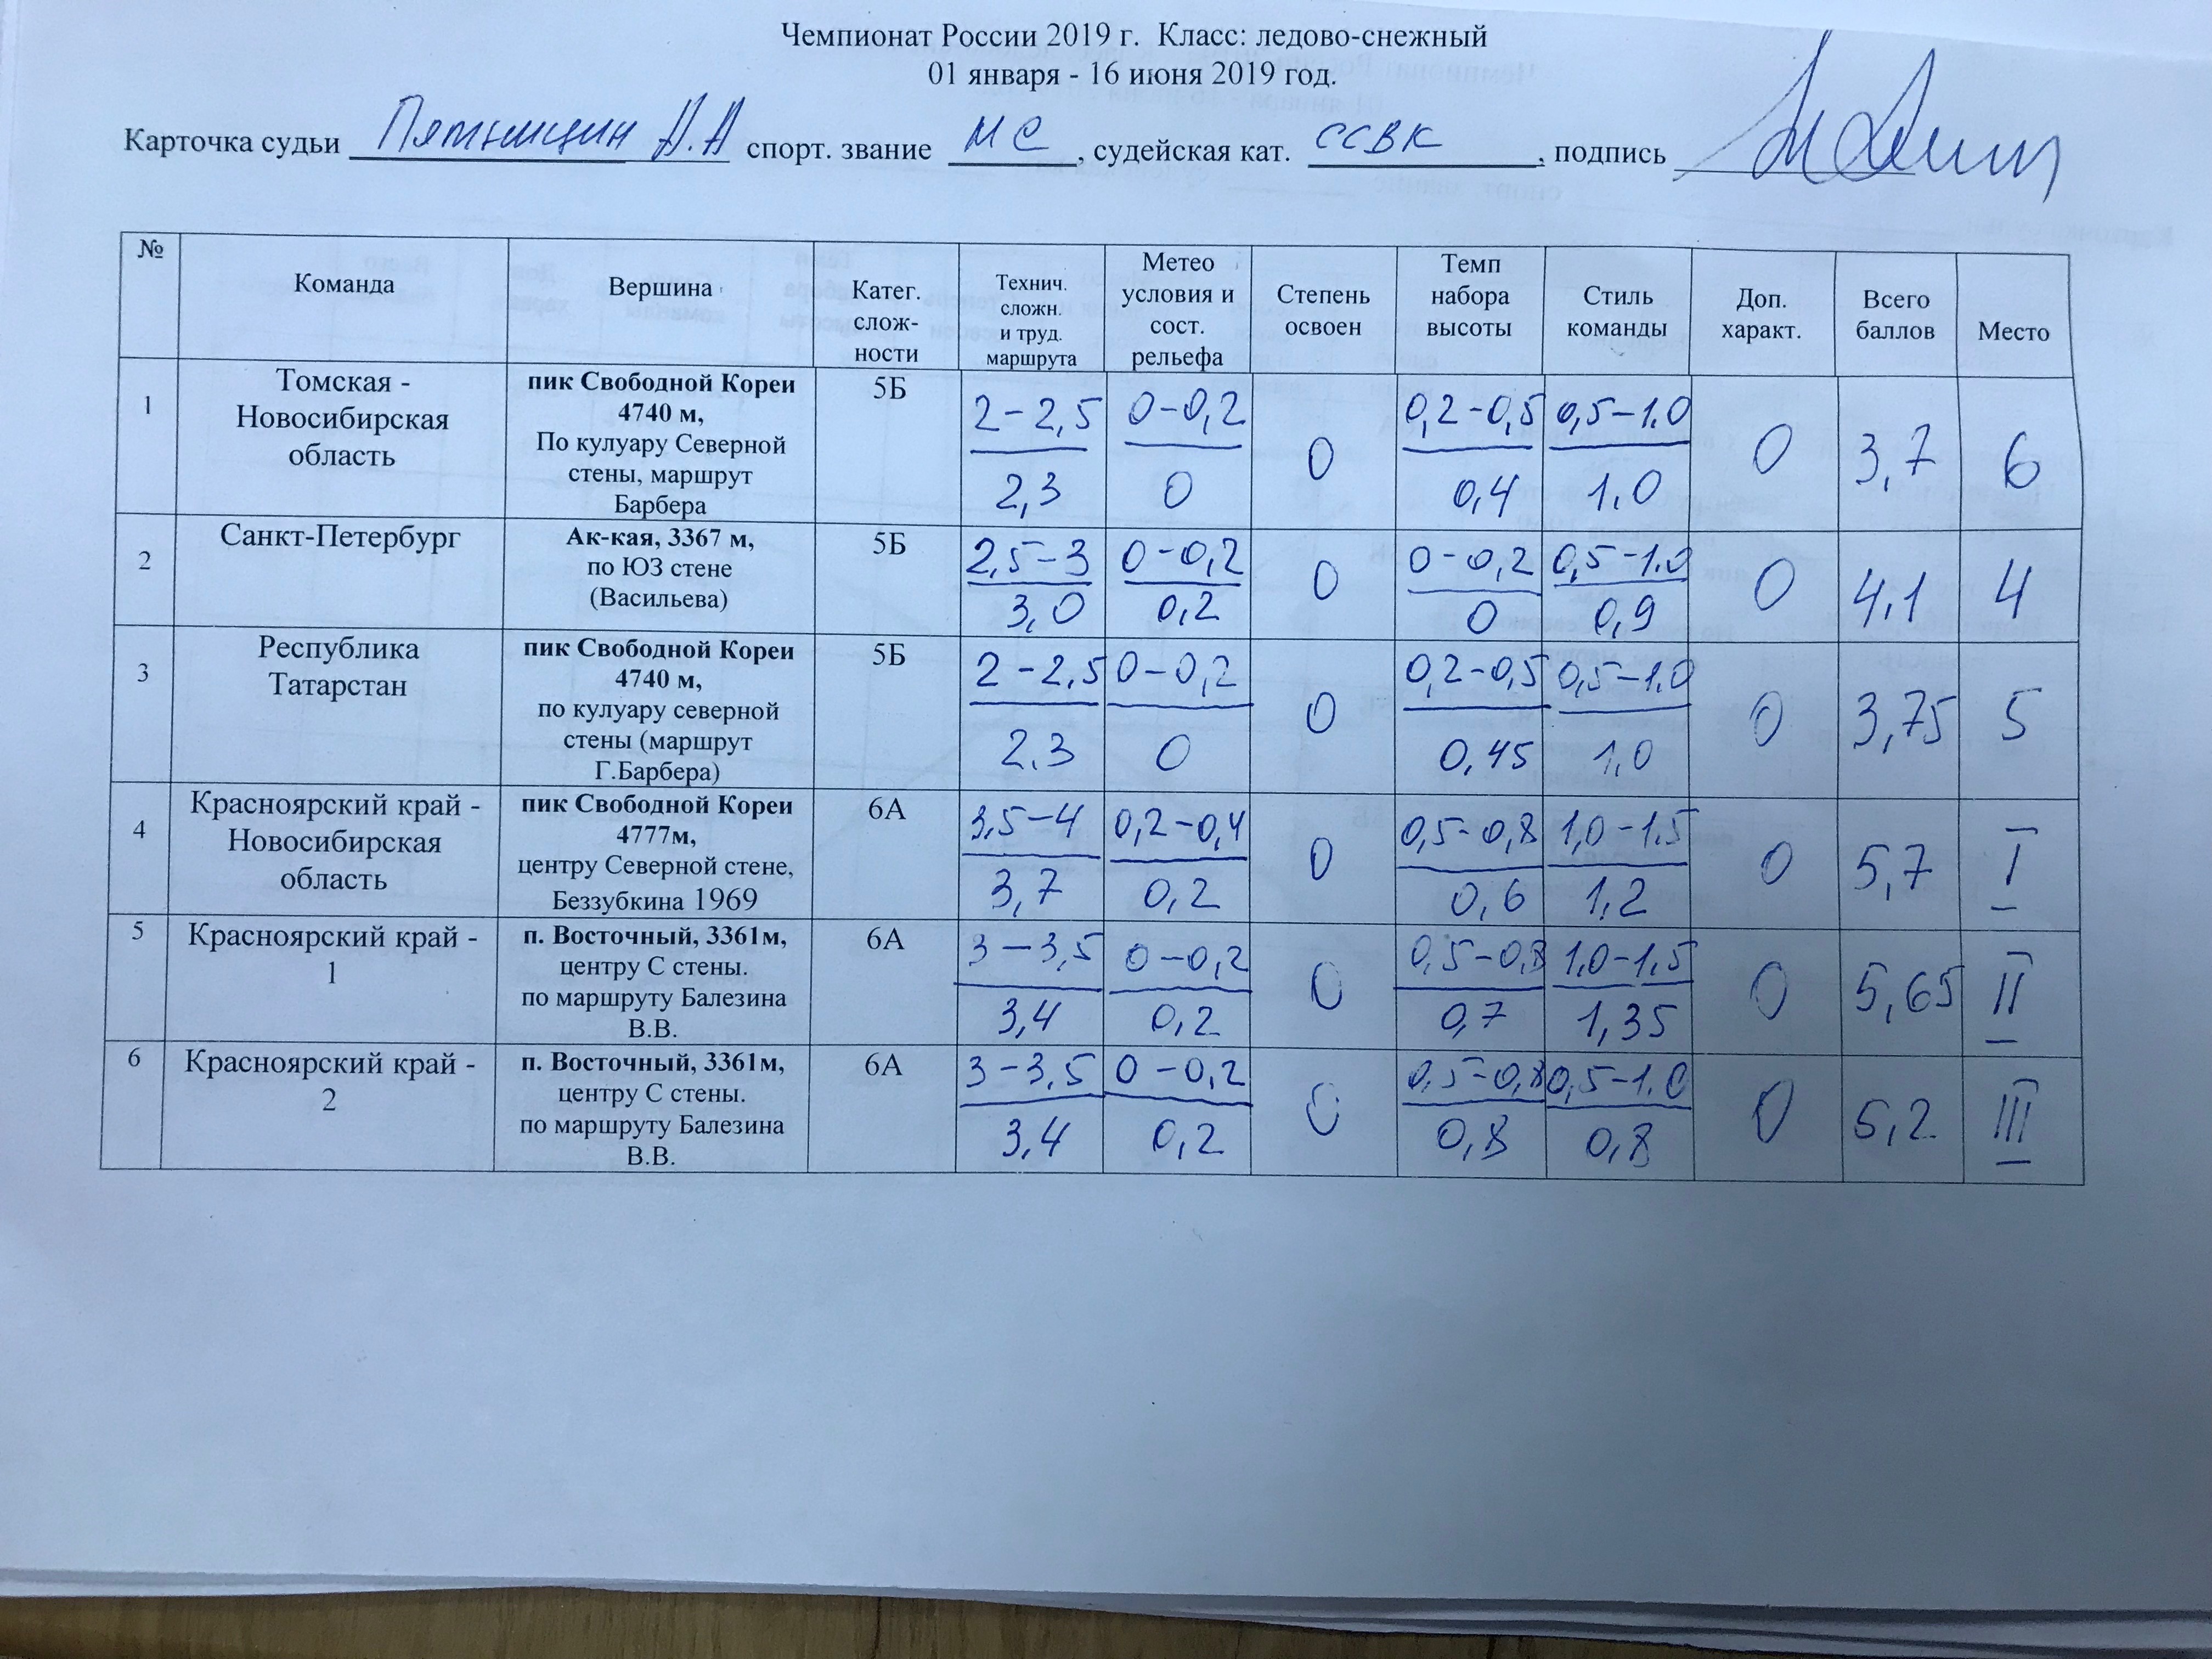 Чемпионат России 2019 г. Класс: ледово-снежный
01 января - 16 июня 2019 год.
Карточка судьи Пятницин А.А спорт. звание МС, судейская кат. ССВК, подпись
№ Команда Вершина Катег. слож- ности Технич. сложн. и труд. маршрута Метео условия и сост. рельефа Степень освоен Темп набора высоты Стиль команды Доп. характ. Всего баллов Место
1 Томская - Новосибирская область пик Свободной Кореи 4740 м, По кулуару Северной стены, маршрут Барбера 5Б 2-2,5 2,3 0-0,2 0 0 0,2-0,5 0,4 0,5-1.0 1.0 0 3,7 6
2 Санкт-Петербург Ак-кая, 3367 м, по ЮЗ стене (Васильева) 5Б 2,5-3 3,0 0-0,2 0,2 0 0-0,2 0 0,5-1.0 0,9 0 4,1 4
3 Республика Татарстан пик Свободной Кореи 4740 м, по кулуару северной стены (маршрут Г.Барбера) 5Б 2-2,5 2,3 0-0,2 0 0 0,2-0,5 0,45 0,5-1.0 1,0 0 3,75 5
4 Красноярский край - Новосибирская область пик Свободной Кореи 4777м, центру Северной стене, Беззубкина 1969 6А 3,5-4 3,7 0,2-0,4 0,2 0 0,5-0,8 0,6 1,0-1.5 1,2 0 5,7 I
5 Красноярский край - 1 п. Восточный, 3361м, центру С стены. по маршруту Балезина В.В. 6А 3-3,5 3,4 0-0,2 0,2 0 0,5-0,8 0,7 1,0-1,5 1,35 0 5,65 II
6 Красноярский край - 2 п. Восточный, 3361м, центру С стены. по маршруту Балезина В.В. 6А 3-3,5 3,4 0-0,2 0,2 0 0,5-0,8 0,8 0,5-1.0 0,8 0 5,2 III